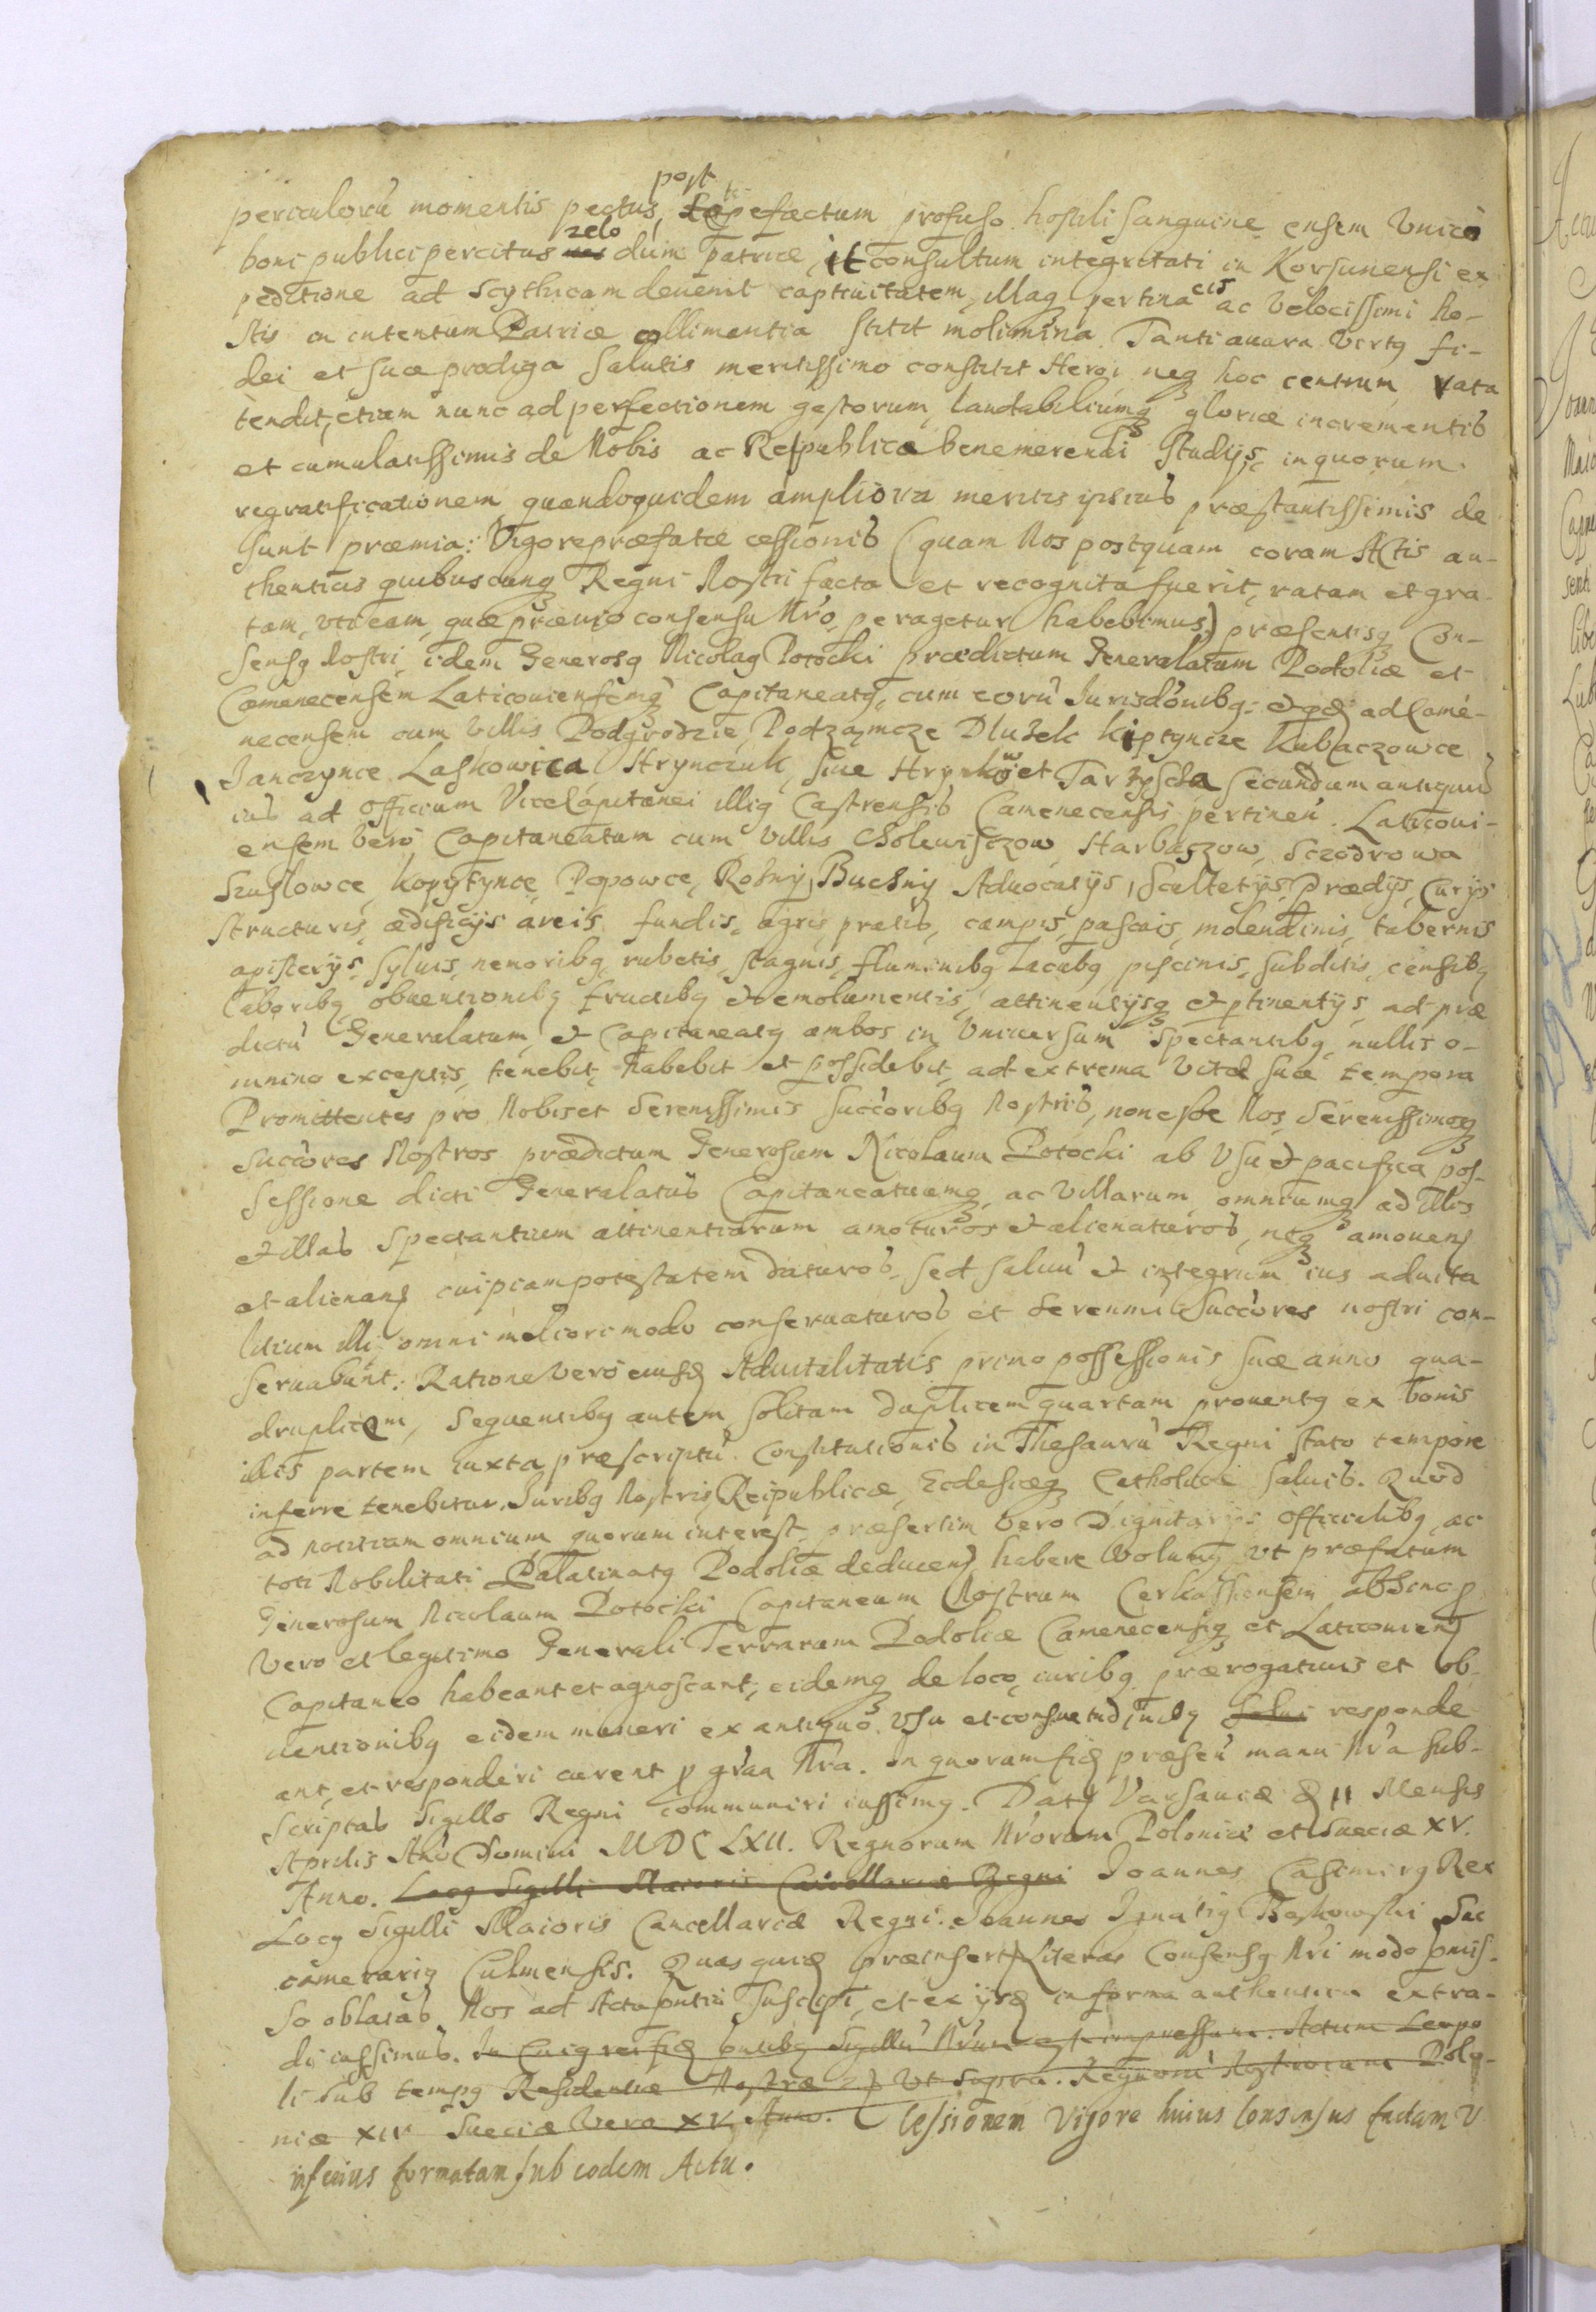 periculorũ momentis pectus, post tepefactum profuso hostili sanguine ensem Vnico
boni publici percitus zelo dum patriæ, it consultum integritati in Korsunensi ex
peditione ad Scythicam devenit captiuitatem, illaq pertinacis ac Velocissimi ho-
stis in intentum Patriæ collimantia stitit molimina. Tanti auara Virtq fi-
dei et suæ prodiga salutis meritissimo constitit Heroi neq hoc centrum rata
tendit, etiam nunc ad perfectionem gestorum, laudabiliumq gloriæ incrementis
et cumulatissimis de Nobis ac Republica benemerendi Studijs, in quorum
regratificationem quandoquidem ampliora meritis ipsius præstantissimis de
sunt præmia: Vigore præfatæ cessionis (quam Nos postquam coram Actis au-
thenticis quibuscunq Regni Nostri facta et recognita fuerit, ratam et gra-
tam, vti eam, quæ prævio consensu Nro peragetur habebimus) præsentisq Con-
sensq Nostri, idem Generosq Nicolaq Potocki prædictum Generalatum Podoliæ et
Camenecensem Laticouiensemq Capitaneatq, cum eorũ Jurisdõnibq: et qd ad Came-
necensem cum Villis Podgrodzie, Podzamcze Dlużek Kiptyncze Kubaczowce
Janczynce Laskowica Hrynczuk, siue Hrynkow et Tarzyscka secundum antiquũ
ius ad officium ViceCapitanei illiq Castrensis Camenecensis pertineñ. Laticoui-
ensem Vero Capitaneatum cum Villis Cholewisczow, Harbaszow, Sczodrowa
Szuslowce, Kopytynce, Popowce, Rożny, Buchny Aduocatijs, Scultetijs, Prædijs, Curijs
structuris, ædificijs areis fundis, agris pratis, campis, pascuis, molendinis, tabernis
apisterijs, syluis, nemoribq, rubetis, stagnis, fluminibq lacubq piscinis, subditis, censibq
laboribq obuentionibq fructibq et emolumentis, attinentijsq et ptinentijs, ad præ
dictũ Generalatum, et Capitaneatq ambos in Vniuersum spectantibq, nullis o-
mnino exceptis, tenebit, habebit et possidebit, ad extrema Vitæ suæ tempora
Promittentes pro Nobis et Serenissimis Succoribq Nostris, non esse Nos Serenissimosq
Succores Nostros prædictum Generosum Nicolaum Potocki ab Vsu et pacifica pos-
sessione dicti Generalatus Capitaneatuumq, ac Villarum, omniumq ad illos
et illas spectantium attinentiarum amoturos et alienaturos, neq amouend
et alienand cuipiam potestatem daturos, sed saluũ et integrum ius aduita
litium illi omni meliori modo conseruaturos, et Serenmi Succores nostri con-
seruabunt: Ratione Vero eiusd Aduitalitatis primo possessionis suæ anno qua-
druplicem, sequentibq autem solitam duplicem quartam prouentq ex bonis
illis partem iuxta præscriptũ Constitutionis in Thesaurũ Regni stato tempore
inferre tenebitur. Juribq Nostris, Reipublicæ, Ecclesiæq Catholicæ saluis. Quod
ad notitiam omnium, quorum interest, præsertim Vero Dignitarijs Officialibq ac
toti Nobilitati Palatinatq Podoliæ deducend habere Volumq Vt præfatum
Generosum Nicolaum Potocki Capitaneum Nostrum Cerkassiensem abhinc p
Vero et legitimo Generali Terrarum Podoliæ Camenecensiq et Laticouiens
Capitaneo habeant et agnoscant, eidemq de loco, iuribq prærogatiuis et ob-
uentionibq eidem muneri ex antiquo Vsu et consuetudinibq responde
ant, et responderi curent p grãa Nra. In quorum fid præsen manu Nra sub-
scriptas Sigillo Regni communiri iussimq. Datq Varsauiæ D 11 Mensis
Aprilis Año Domini MDCLXII. Regnorum Nrorum Poloniæ et Sueciæ XV.
Anno. Locq Sigilli Maioris Cancellariæ Regni Joannes Casimirq Rex
Locq Sigilli Maioris Cancellariæ Regni. Joannes Ignatiq Bąkowski Suc
camerariq Culmensis. Quas quid præinsertas literas Consensq Nri modo pmis-
so oblatas, Nos ad Acta pntia suscipi, et ex ijsd in forma authentica extra-
di iussimus. In Cuiq rei fid pntibq Sigillũ Nrum est impressum. Actum Leopo
li sub tempq Residentiæ Nostræ Vt supra. Regnorũ Nostrorum Polo-
niæ XIV Sueciæ Vero XV Anno. Cessionem Vigore huius Consensus factam V
inferius formatam sub eodem Actu.